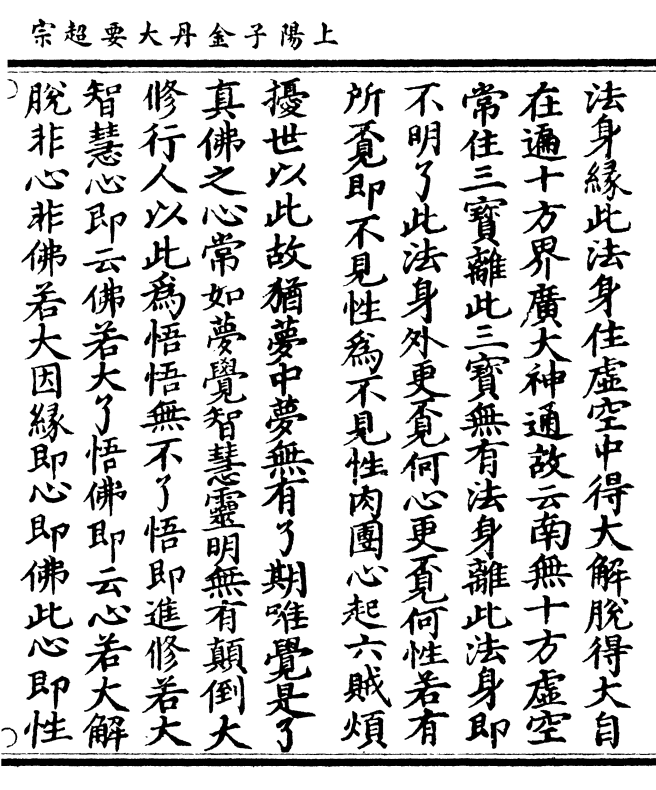 上陽子金丹大要超宗
法身緣此法身住虛空中得大解脫得大自
在遍十方界廣大神通故云南無十方虛空
常住三寶離此三寶無有法身離此法身即
不明了此法身外更覔何心更覔何性若有
所覔即不見性為不見性肉團心起六賊煩
擾世以此故猶夢中夢無有了期唯覺是了
真佛之心常如夢覺智慧靈明無有顛倒大
修行人以此為悟悟無不了悟即進修若大
智慧心即云佛若大了悟佛即云心若大解
脫非心非佛若大因緣即心即佛此心即性